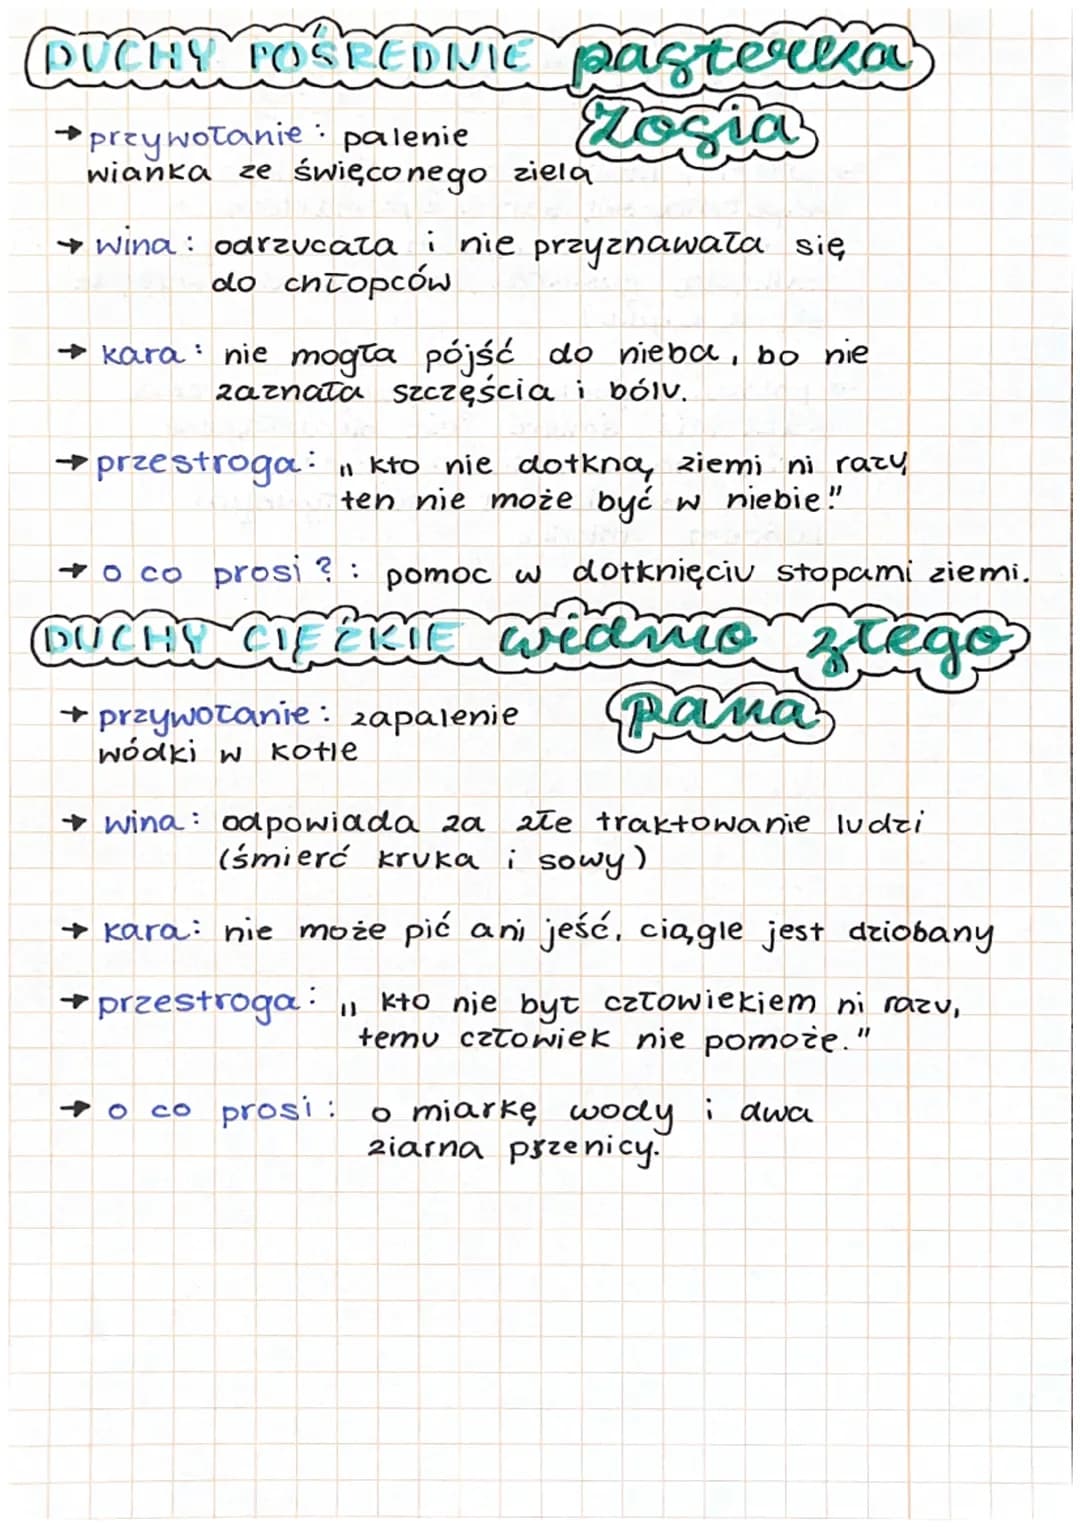 DUCHY POŚREDNIE pasterka
Zosia
→ przywołanie: palenie
wianka ze święconego ziela
→ wina: odrzucała i nie przyznawała się
do chłopców
→ kara: nie mogła pójść do nieba, bo nie
zaznała szczęścia i bólu.
→ przestroga: „ kto nie dotkną, ziemi ni razy
ten nie może być w niebie!"
→ o co prosi?: pomoc w dotknięciu stopami ziemi.
DUCHY CIĘŻKIE widmo złego
pana
→ przywołanie: zapalenie
wódki w kotle
→ wina: odpowiada za złe traktowanie ludzi
(śmierć kruka i sowy)
→ kara: nie może pić ani jeść, ciągle jest dziobany
→ przestroga: „ kto nie był człowiekiem ni razu,
temu człowiek nie pomoże."
→ o co prosi: o miarkę wody i dwa
ziarna pszenicy.